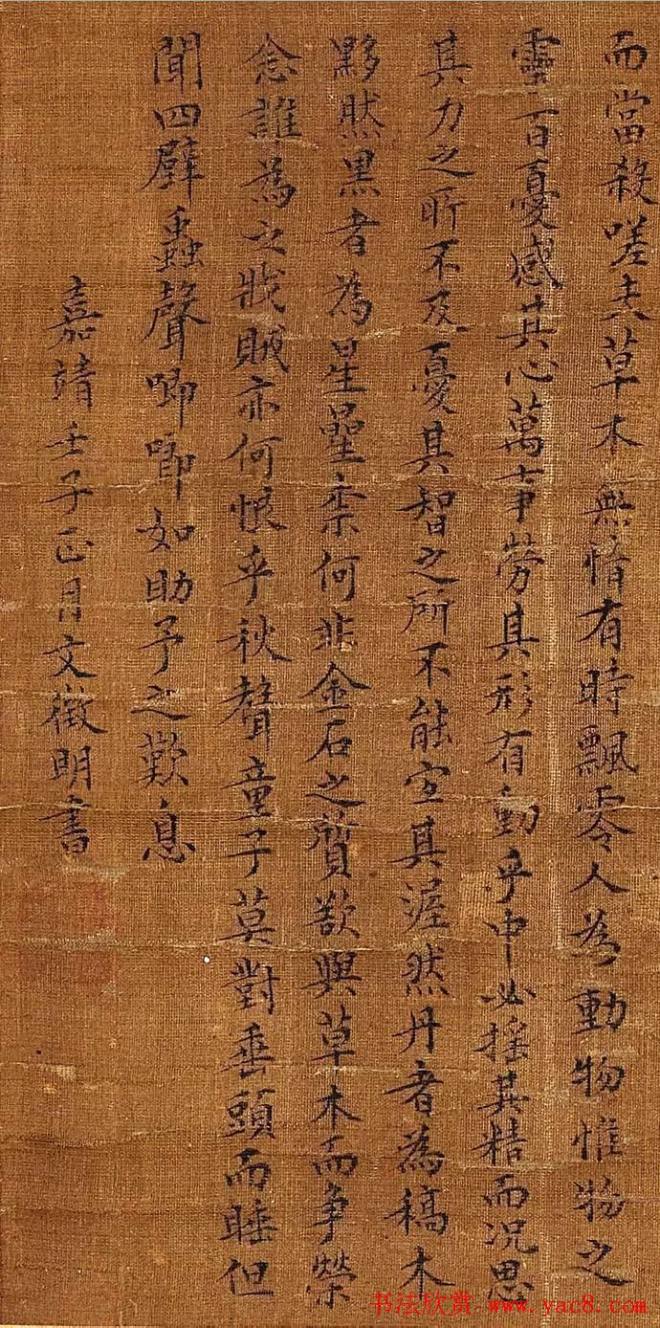 而當殺嗟夫草木無情有時飄零人為動物惟物之
靈百憂感其心萬事勞其形有動乎中必搖其精而況思
其力之所不及憂其智之所不能宜其渥然丹者為稿木
黟然黑者為星曐柰何非金石之質欲與草木而争榮
念誰為之戕賊亦何恨乎秋聲童子莫對垂頭而睡但
聞四壁蟲聲唧唧如助予之歎息
嘉靖壬子正月文徵明書
书法欣赏·www.yac8.com